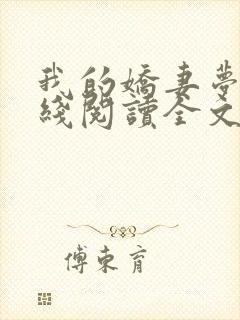 我的嬌妻夢
綫閱讀全文
傅東育